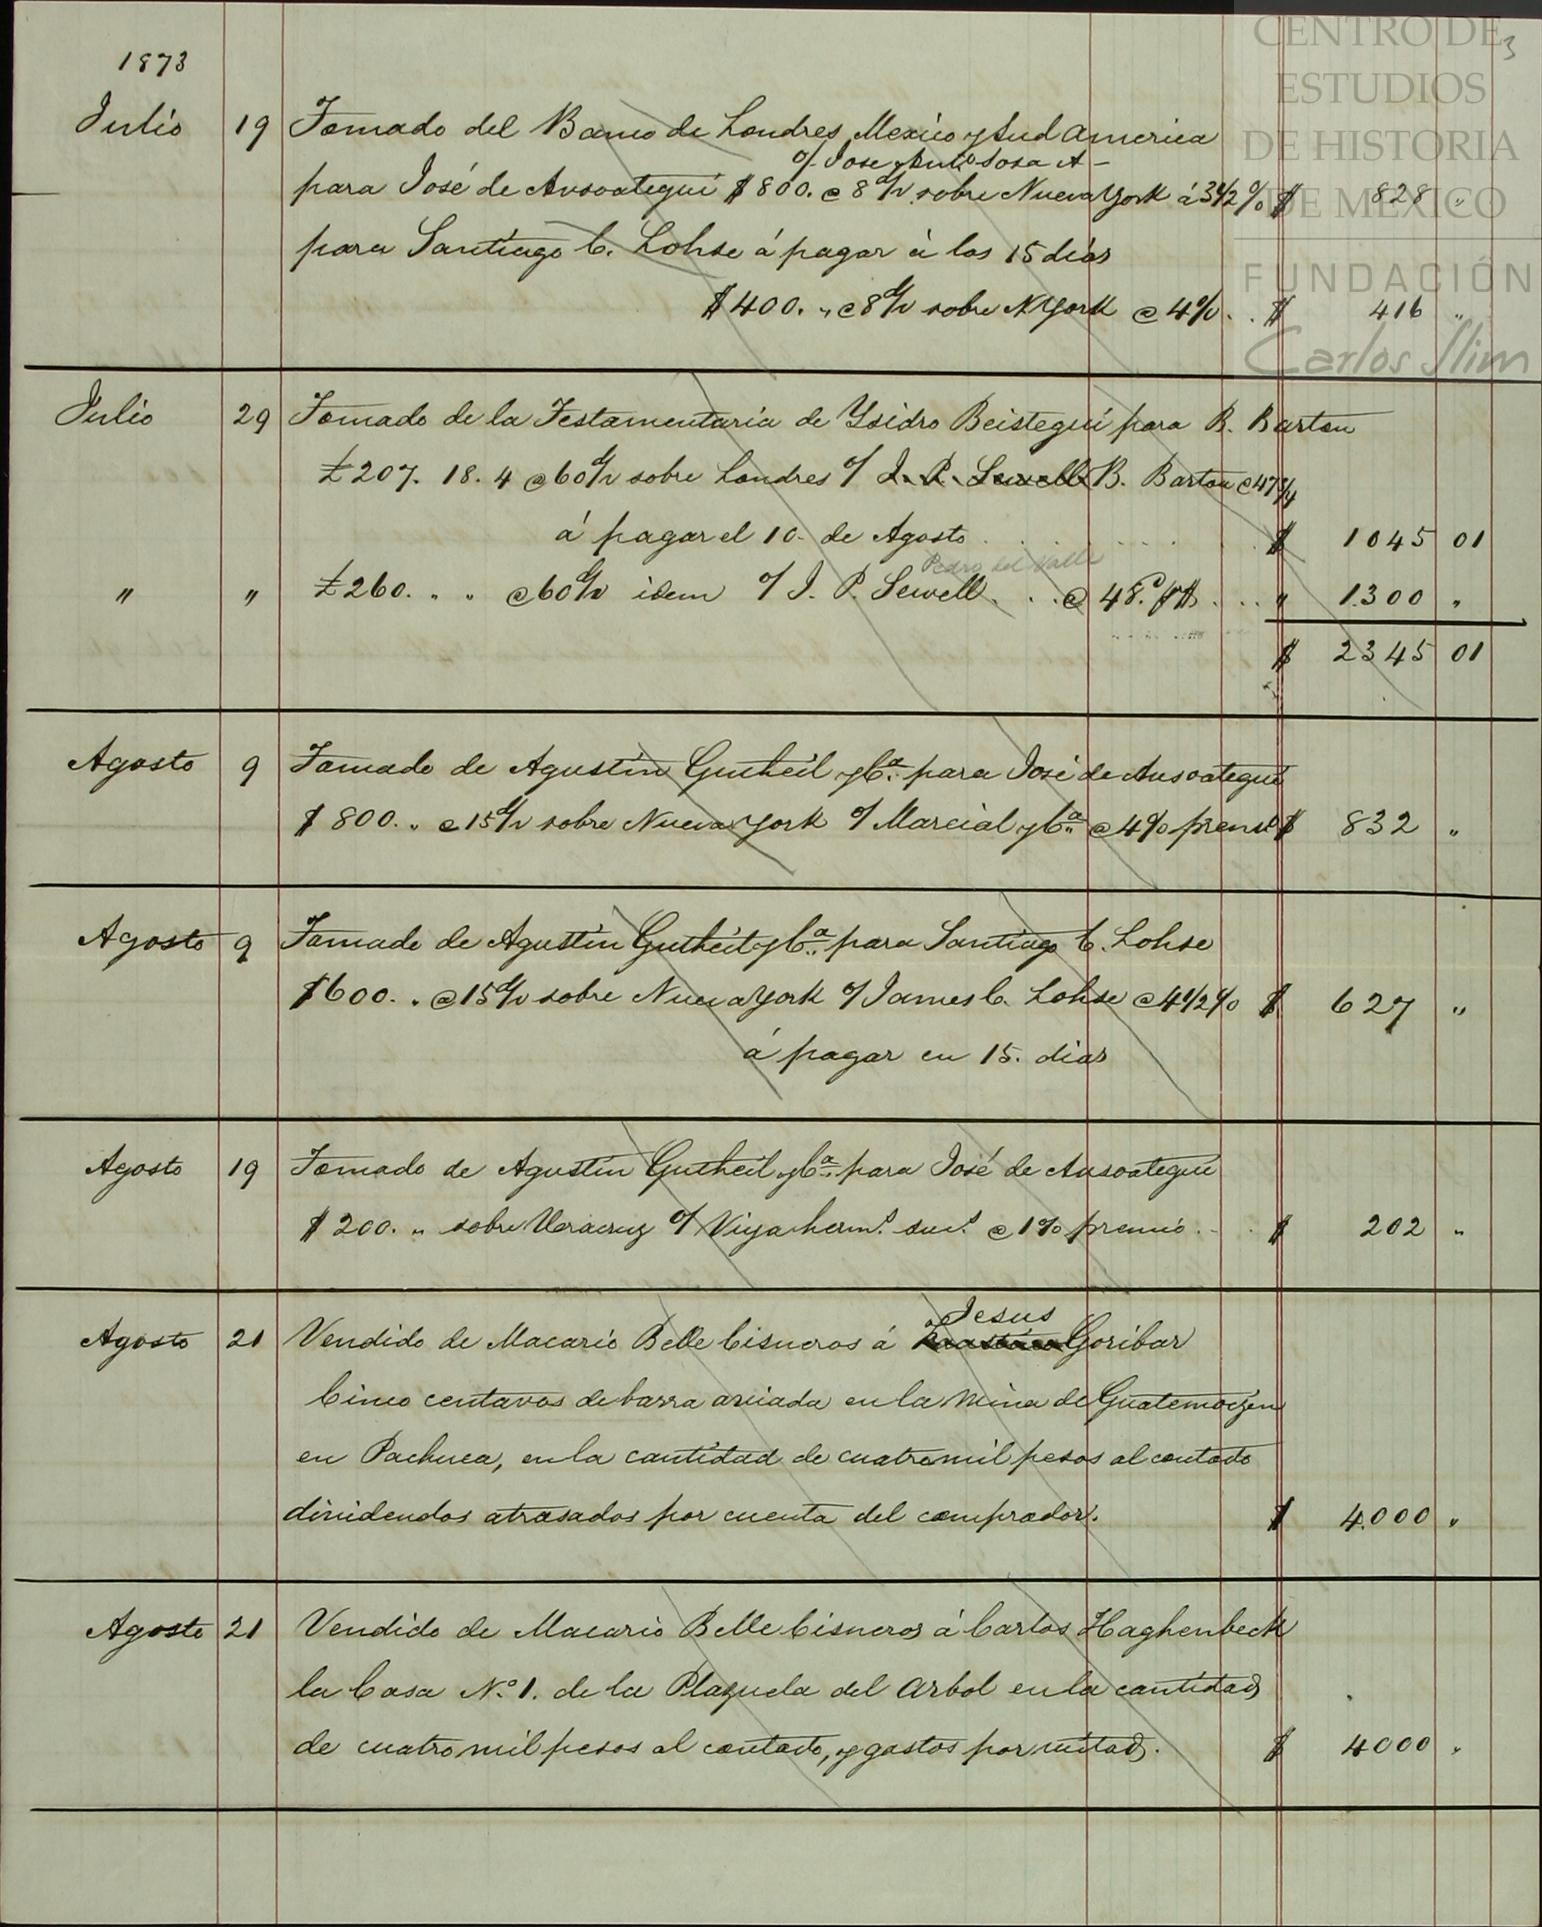 CENTRO DE
ESTUDIOS
DE HISTORIA
DE MÉXICO
FUNDACIÓN
Carlos Slim
3
1873
Julio 19 Tomado del Banco de Londres Mexico y Sud America
o/ Jose y Anto Sosa A-
para José de Ansoategui $ 800. @ 8 d/v sobre Nueva York á 3 1/2 % $ 828 "
para Santiago C. Lohse á pagar á los 15 dias
$ 400. " @ 8 d/v sobre N York @ 4% . . $ 416 "
Julio 29 Tomado de la Testamentaria de Ysidro Beistegui para B. Barton
£ 207. 18. 4 @ 60 d/v sobre Londres o/ J. P. Sewell B. Barton @ 47 3/4
á pagar el 10. de Agosto $ 1045 01
Pedro del Valle
" " £ 260. " " @ 60 d/v idem o/ J. P. Sewell . . . @ 48.d p $ . . . " 1.300 "
$ 2345 01
Agosto 9 Tomado de Agustin Gutheil y Ca. para José de Ansoategui
$ 800. " @ 15 d/v sobre Nueva York o/ Marcial y Ca. @ 4% premio $ 832 "
Agosto 9 Tomado de Agustin Gutheil y Ca. para Santiago C. Lohse
$ 600. " @ 15 d/v sobre Nueva York o/ James C. Lohse @ 4 1/2 % $ 627 "
á pagar en 15. dias
Agosto 19 Tomado de Agustin Gutheil y Ca. para José de Ansoategui
$ 200. " sobre Veracruz o/ Viya herms. sucs. @ 1% premio . . $ 202 "
Jesus
Agosto 21 Vendido de Macario Belle Cisneros á Goribar
Cinco centavos de barra aviada en la Mina de Guatemoczin
en Pachuca, en la cantidad de cuatro mil pesos al contado
dividendos atrasados por cuenta del comprador. $ 4.000 "
Agosto 21 Vendido de Macario Belle Cisneros á Carlos Haghenbeck
la Casa No. 1. de la Plazuela del Arbol en la cantidad
de cuatro mil pesos al contado, y gastos por mitad. $ 4000 "